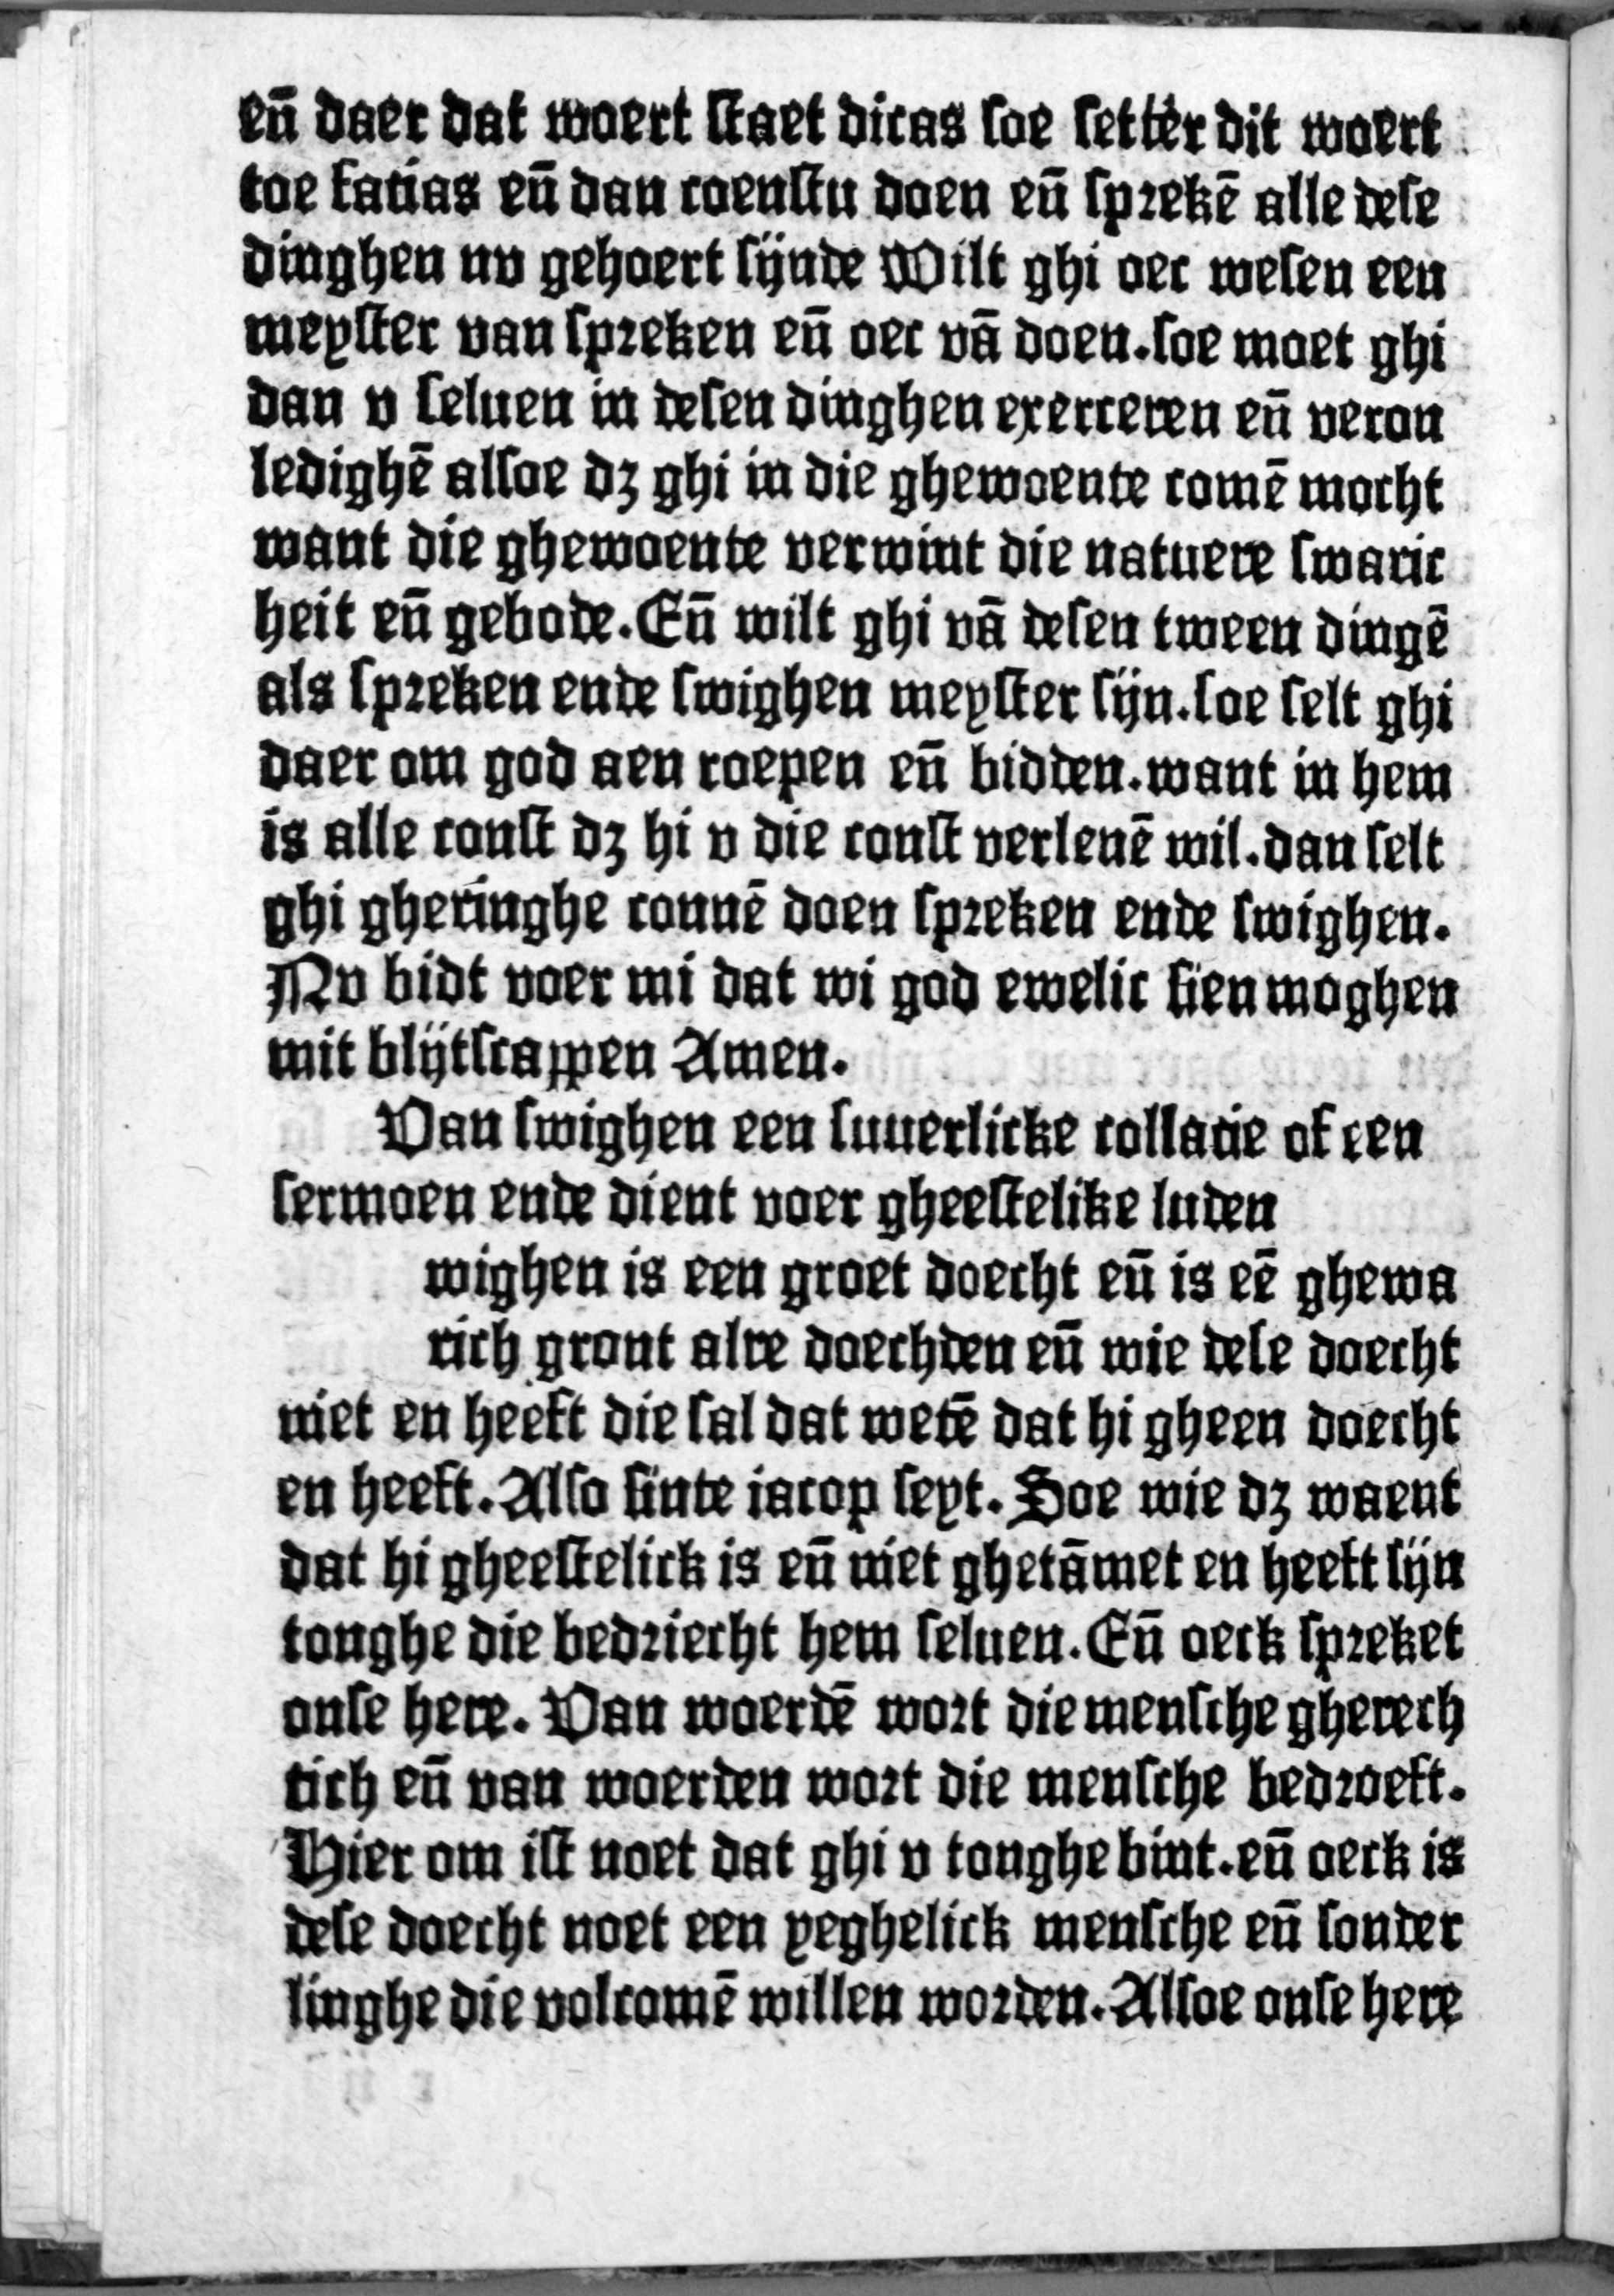 en̄ daer dat woert staet dicas soe setter dit woert
toe facias en̄ dan coenstu doen en̄ sprekē alle dese
dinghen nv gehoert sijnde Wilt ghi oec wesen een
meyster van spreken en̄ oec vā doen. soe moet ghi
dan v seluen in desen dinghen exerceren en̄ veron
ledighē alsoe dz ghi in die ghewoente comē mocht
want die ghewoente verwint die natuere swaric
heit en̄ gebode. En̄ wilt ghi vā desen tween dingē
als spreken ende swighen meyster sijn. soe selt ghi
daer om god aen roepen en̄ bidden. want in hem
is alle const dz hi v die const verlenē wil. dan selt
ghi gheringhe connē doen spreken ende swighen.
Nv bidt voer mi dat wi god ewelic sien moghen
mit blijtscappen Amen.
Van swighen een suuerlicke collacie of een
sermoen ende dient voer gheestelike luden
wighen is een groet doecht en̄ is eē ghewa
rich gront alre doechden en̄ wie dese doecht
niet en heeft die sal dat wetē dat hi gheen doecht
en heeft. Also sinte iacop seyt. Soe wie dz waent
dat hi gheestelick is en̄ niet ghetāmet en heeft sijn
tonghe die bedriecht hem seluen. En̄ oeck spreket
onse here. Van woerdē wort die mensche gherech
tich en̄ van woerden wort die mensche bedroeft.
Hier om ist noet dat ghi v tonghe bint. en̄ oeck is
dese doecht noet een yeghelick mensche en̄ sonder
linghe die volcomē willen worden. Alsoe onse here